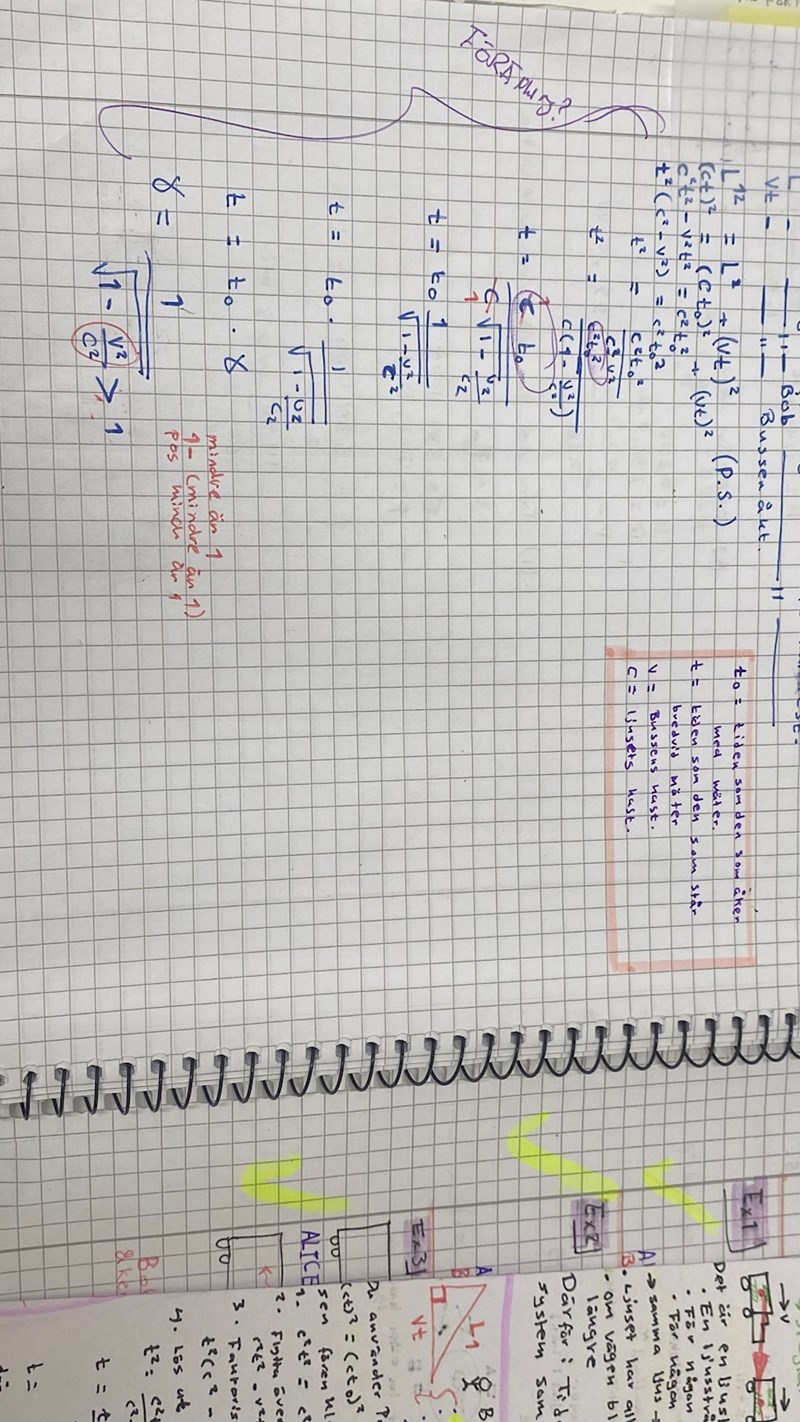 FÖRÄNDRING?
L =
vt = — " — Bob — " —
— " — Bussen åkt.
L₁² = L² + (vt)² (P.S.)
(ct)² = (ct₀)² + (vt)²
c²t² - v²t² = c²t₀²
t²(c² - v²) = c²t₀²
t² = c²t₀² / c² v²
t² = c²t₀² / c(1 - v²/c²)
t = c t₀ / c √1 - v²/c²
t = t₀ 1 / √1 - v²/c²
t = t₀ · 1 / √1 - v²/c²
t = t₀ · γ
γ = 1 / √1 - v²/c² > 1
mindre än 1
1 - (mindre än 1)
pos mindre än 1
t₀ = tiden som den som åker
med mäter.
t = tiden som den som står
bredvid mäter
v = Bussens hast.
c = ljusets hast.
Ex1
→ v
Det är en ljus
· En ljusstr
· För någon
· För någon
Ex2
A
→ samma ljus -
B. Ljuset har al
· om vägen bl
längre
Därför: Tid
system som
Ex3
A
B
L₁
vt
B
ALICE
Du använder P
(ct)² = (ct₀)²
sen fören kl
1. c²t² = c²
2. Flytta över
c²t² - v²
3. Faktoris
t²(c² -
4. Lös ut
t² = c²t
c²
t =
t =
Bo
åke